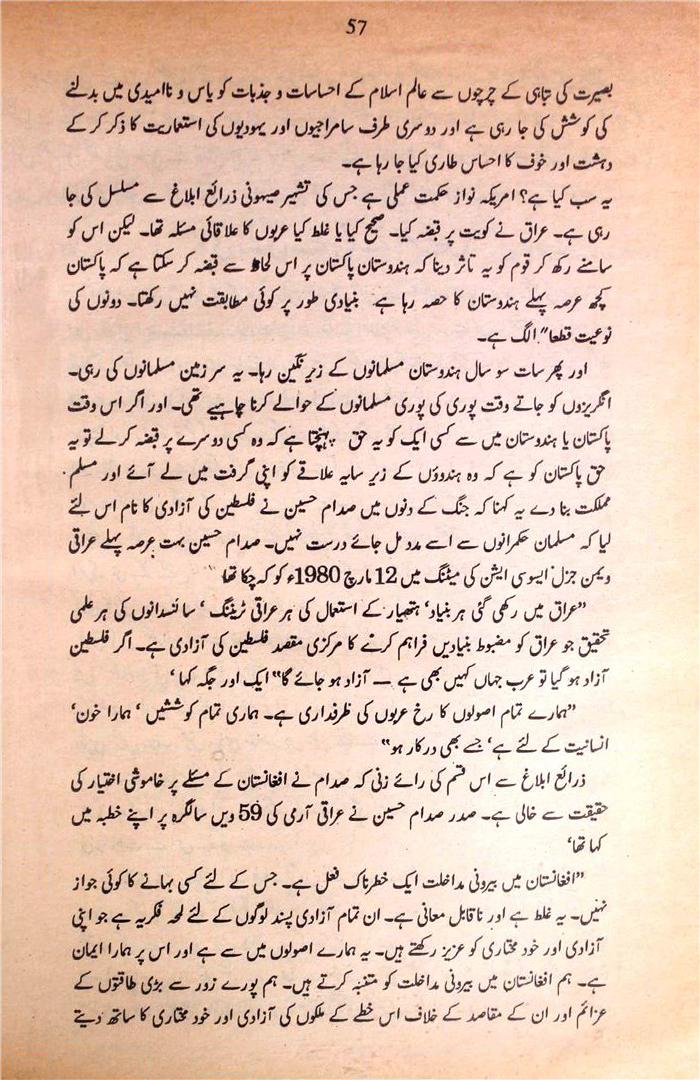 57
بصیرت کی تباہی کے چرچوں سے عالم اسلام کے احساسات و جذبات کو یاس و ناامیدی میں بدلنے
کی کوشش کی جا رہی ہے اور دوسری طرف سامراجیوں اور یہودیوں کی استعماریت کا ذکر کر کے
دہشت اور خوف کا احساس طاری کیا جا رہا ہے۔
یہ سب کیا ہے؟ امریکہ نواز حکمت عملی ہے جس کی تشہیر صیہونی ذرائع ابلاغ سے مسلسل کی جا
رہی ہے۔ عراق نے کویت پر قبضہ کیا۔ صحیح کیا یا غلط کیا عربوں کا علاقائی مسئلہ تھا۔ لیکن اس کو
سامنے رکھ کر قوم کو یہ تاثر دینا کہ ہندوستان پاکستان پر اس لحاظ سے قبضہ کر سکتا ہے کہ پاکستان
کچھ عرصہ پہلے ہندوستان کا حصہ رہا ہے بنیادی طور پر کوئی مطابقت نہیں رکھتا۔ دونوں کی
نوعیت قطعا" الگ ہے۔
اور پھر سات سو سال ہندوستان مسلمانوں کے زیر نگین رہا۔ یہ سر زمین مسلمانوں کی رہی۔
انگریزوں کو جاتے وقت پوری کی پوری مسلمانوں کے حوالے کرنا چاہیے تھی۔ اور اگر اس وقت
پاکستان یا ہندوستان میں سے کسی ایک کو یہ حق پہنچتا ہے کہ وہ کسی دوسرے پر قبضہ کرلے تو یہ
حق پاکستان کو ہے کہ وہ ہندوؤں کے زیر سایہ علاقے کو اپنی گرفت میں لے آئے اور مسلم
مملکت بنا دے یہ کہنا کہ جنگ کے دنوں میں صدام حسین نے فلسطین کی آزادی کا نام اس لئے
لیا کہ مسلمان حکمرانوں سے اسے مدد مل جائے درست نہیں۔ صدام حسین بہت عرصہ پہلے عراقی
ویمن جنرل ایسوسی ایشن کی میٹنگ میں 12 مارچ 1980ء کو کہ چکا تھا
"عراق میں رکھی گئی ہر بنیاد' ہتھیار کے استعمال کی ہر عراقی ٹریننگ ' سائنسدانوں کی ہر علمی
تحقیق جو عراق کو مضبوط بنیادیں فراہم کرنے کا مرکزی مقصد فلسطین کی آزادی ہے۔ اگر فلسطین
آزاد ہو گیا تو عرب جہاں کہیں بھی ہے — آزاد ہو جائے گا" ایک اور جگہ کہا '
"ہمارے تمام اصولوں کا رخ عربوں کی طرفداری ہے۔ ہماری تمام کوششیں ' ہمارا خون'
انسانیت کے لئے ہے' جسے بھی درکار ہو"
ذرائع ابلاغ سے اس قسم کی رائے زنی کہ صدام نے افغانستان کے مسئلے پر خاموشی اختیار کی
حقیقت سے خالی ہے۔ صدر صدام حسین نے عراقی آرمی کی 59 ویں سالگرہ پر اپنے خطبہ میں
کہا تھا'
"افغانستان میں بیرونی مداخلت ایک خطرناک فعل ہے۔ جس کے لئے کسی بہانے کا کوئی جواز
نہیں۔ یہ غلط ہے اور ناقابل معافی ہے۔ ان تمام آزادی پسند لوگوں کے لئے لمحہ فکریہ ہے جو اپنی
آزادی اور خود مختاری کو عزیز رکھتے ہیں۔ یہ ہمارے اصولوں میں سے ہے اور اس پر ہمارا ایمان
ہے۔ ہم افغانستان میں بیرونی مداخلت کو متنبہ کرتے ہیں۔ ہم پورے زور سے بڑی طاقتوں کے
عزائم اور ان کے مقاصد کے خلاف اس خطے کے ملکوں کی آزادی اور خود مختاری کا ساتھ دیتے